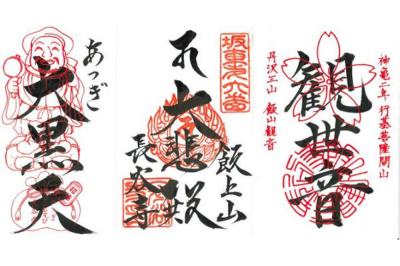 あつぎ
大黒天
坂東第六番
飯上山
大悲殿
長谷寺
神亀二年 行基菩薩開山
観世音
丹沢三山 飯山観音